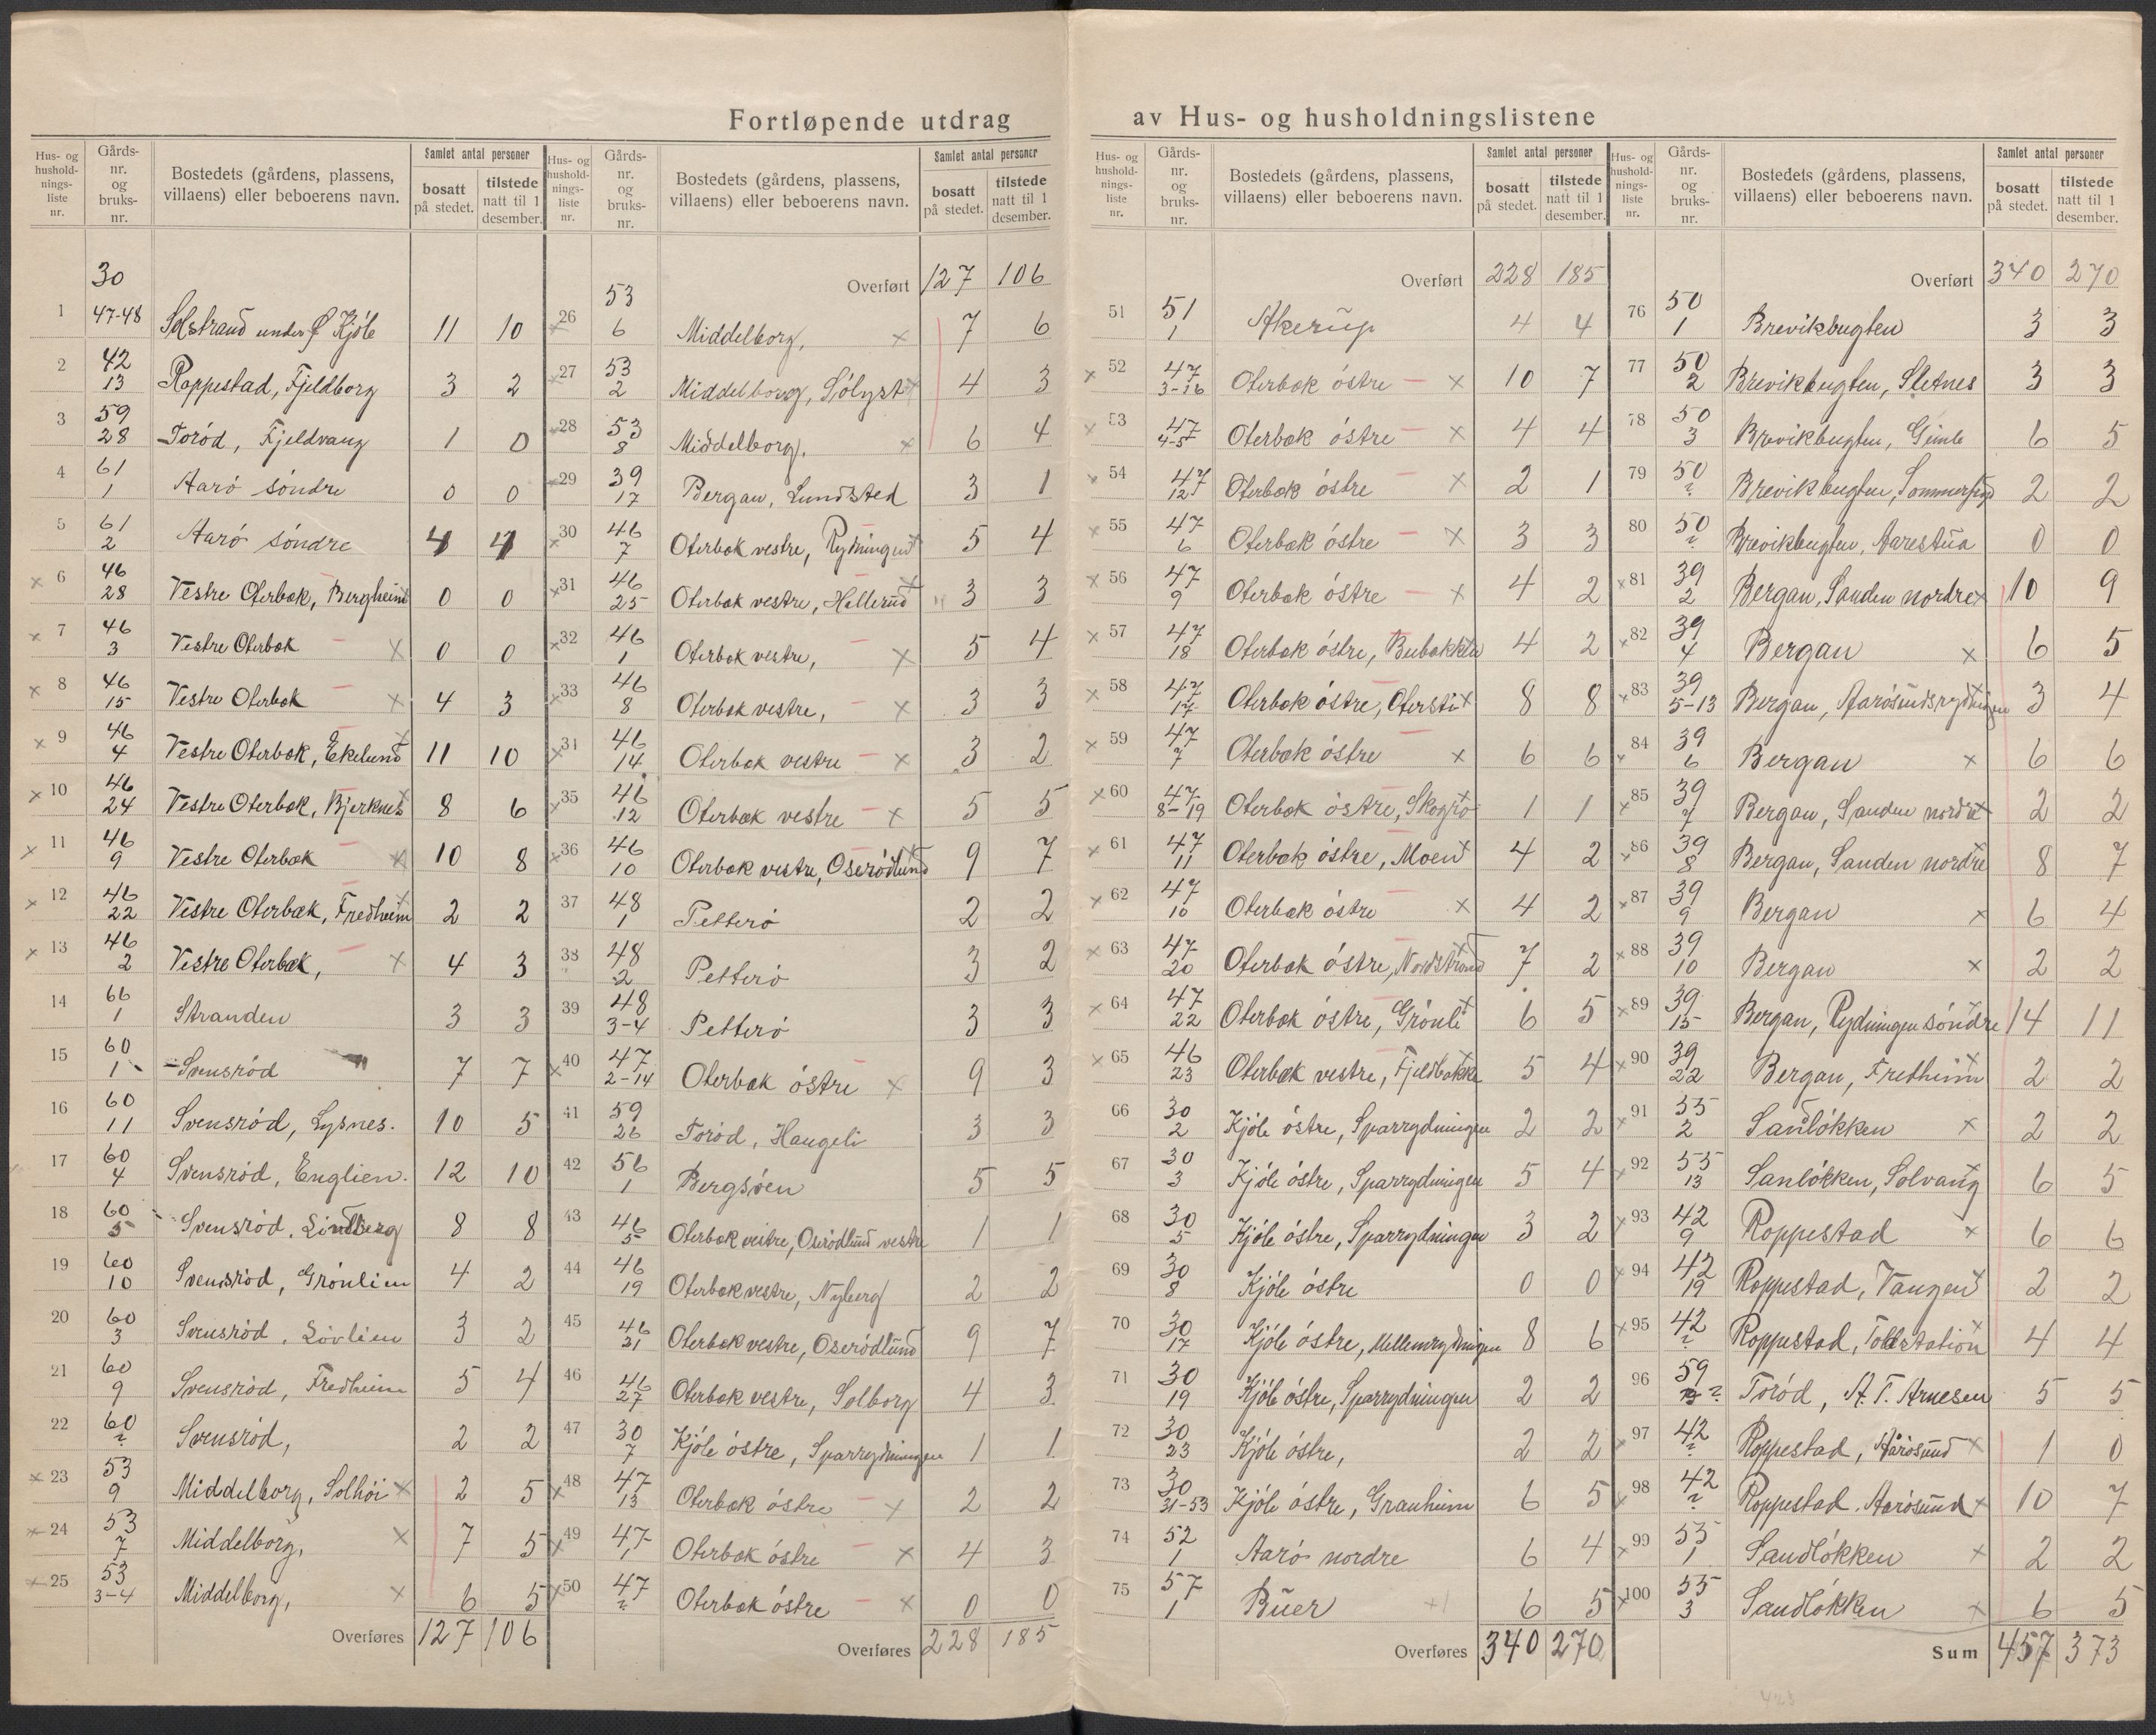 Fortløpende utdrag av Hus- og husholdningslistene
Hus- og husholdnings-liste nr. | Gårds-nr. og bruks-nr. | Bostedets (gårdens, plassens, villaens) eller beboerens navn. | Samlet antal personer | bosatt på stedet. | tilstede natt til 1 desember.
1 | 30 47-48 | Solstrand under Ø Kjöle | 11 | 10
2 | 42 13 | Roppestad, Fjeldborg | 3 | 2
3 | 59 28 | Toröd, Fjeldvang | 1 | 0
4 | 61 1 | Aarö söndre | 0 | 0
5 | 61 2 | Aarö söndre | 4 | 4
x 6 | 46 28 | Vestre Oterbæk, Bergheim | 0 | 0
x 7 | 46 3 | Vestre Oterbæk x | 0 | 0
x 8 | 46 15 | Vestre Oterbæk x | 4 | 3
x 9 | 46 4 | Vestre Oterbæk, Ekelund x | 11 | 10
x 10 | 46 24 | Vestre Oterbæk, Bjerknes x | 8 | 6
x 11 | 46 9 | Vestre Oterbæk x | 10 | 8
x 12 | 46 22 | Vestre Oterbæk, Fredheim x | 2 | 2
x 13 | 46 2 | Vestre Oterbæk, x | 4 | 3
14 | 66 1 | Stranden | 3 | 3
15 | 60 1 | Svensröd | 7 | 7
16 | 60 11 | Svensröd, Lysnes. | 10 | 5
17 | 60 4 | Svensröd, Englien. | 12 | 10
18 | 60 5 | Svensröd, Lindberg | 8 | 8
19 | 60 10 | Svensröd, Grönlien | 4 | 2
20 | 60 3 | Svensröd, Lövlien | 3 | 2
21 | 60 9 | Svensröd, Fredheim | 5 | 4
22 | 60 ? | Svensröd, | 2 | 2
x 23 | 53 9 | Middelborg, Solhöi x | 2 | 5
x 24 | 53 7 | Middelborg, x | 7 | 5
x 25 | 53 3-4 | Middelborg, x | 6 | 5
Overføres | 127 | 106
Hus- og husholdnings-liste nr. | Gårds-nr. og bruks-nr. | Bostedets (gårdens, plassens, villaens) eller beboerens navn. | Samlet antal personer | bosatt på stedet. | tilstede natt til 1 desember.
Overført | 127 | 106
x 26 | 53 6 | Middelborg, x | 7 | 6
x 27 | 53 2 | Middelborg, Sölyst x | 4 | 3
x 28 | 53 8 | Middelborg, x | 6 | 4
x 29 | 39 17 | Bergan, Lundsted | 3 | 1
x 30 | 46 7 | Oterbæk vestre, Rydningen x | 5 | 4
x 31 | 46 25 | Oterbæk vestre, Hellerud x | 3 | 3
x 32 | 46 1 | Oterbæk vestre, x | 5 | 4
x 33 | 46 8 | Oterbæk vestre, x | 3 | 3
x 34 | 46 14 | Oterbæk vestre x | 3 | 2
x 35 | 46 12 | Oterbæk vestre x | 5 | 5
x 36 | 46 10 | Oterbæk vestre, Oserödlund x | 9 | 7
37 | 48 1 | Petterö | 2 | 2
38 | 48 2 | Petterö | 3 | 2
39 | 48 3-4 | Petterö | 3 | 3
x 40 | 47 2-14 | Oterbæk östre x | 9 | 3
41 | 59 26 | Toröd, Haugeli | 3 | 3
42 | 56 1 | Bergsöen | 5 | 5
43 | 46 5 | Oterbæk vestre, Oserödlund vestre | 1 | 1
44 | 46 19 | Oterbæk vestre, Nyberg | 2 | 2
45 | 46 21 | Oterbæk vestre, Oserödlund | 9 | 7
46 | 46 27 | Oterbæk vestre, Solborg | 4 | 3
47 | 30 7 | Kjöle östre, Sparrydningen | 1 | 1
x 48 | 47 13 | Oterbæk östre x | 2 | 2
x 49 | 47 1 | Oterbæk östre x | 4 | 3
x 50 | 47 ? | Oterbæk östre x | 0 | 0
Overføres | 228 | 185
Hus- og husholdnings-liste nr. | Gårds-nr. og bruks-nr. | Bostedets (gårdens, plassens, villaens) eller beboerens navn. | Samlet antal personer | bosatt på stedet. | tilstede natt til 1 desember.
Overført | 228 | 185
51 | 51 1 | Akerup | 4 | 4
x 52 | 47 3-16 | Oterbæk östre x | 10 | 7
x 53 | 47 4-5 | Oterbæk östre x | 4 | 4
x 54 | 47 12 | Oterbæk östre x | 2 | 1
x 55 | 47 6 | Oterbæk östre x | 3 | 3
x 56 | 47 9 | Oterbæk östre x | 4 | 2
x 57 | 47 18 | Oterbæk östre, Bubakken | 4 | 2
x 58 | 47 17 | Oterbæk östre, Otersti x | 8 | 8
x 59 | 47 7 | Oterbæk östre x | 6 | 6
x 60 | 47 8-19 | Oterbæk östre, Skogro x | 1 | 1
x 61 | 47 11 | Oterbæk östre, Moen x | 4 | 2
x 62 | 47 10 | Oterbæk östre x | 4 | 2
x 63 | 47 20 | Oterbæk östre, Nordstrand x | 7 | 2
x 64 | 47 22 | Oterbæk östre, Grönli x | 6 | 5
x 65 | 46 23 | Oterbæk vestre, Fjeldbakke x | 5 | 4
66 | 30 2 | Kjöle östre, Sparrydningen | 2 | 2
67 | 30 3 | Kjöle östre, Sparrydningen | 5 | 4
68 | 30 5 | Kjöle östre, Sparrydningen | 3 | 2
69 | 30 8 | Kjöle östre | 0 | 0
70 | 30 17 | Kjöle östre, Mellemrydningen | 8 | 6
71 | 30 19 | Kjöle östre, Sparrydningen | 2 | 2
72 | 30 23 | Kjöle östre, | 2 | 2
73 | 30 31-53 | Kjöle östre, Granheim | 6 | 5
74 | 52 1 | Aarö nordre | 6 | 4
75 | 57 1 | Buer | 6 | 5
Overføres | 340 | 270
Hus- og husholdnings-liste nr. | Gårds-nr. og bruks-nr. | Bostedets (gårdens, plassens, villaens) eller beboerens navn. | Samlet antal personer | bosatt på stedet. | tilstede natt til 1 desember.
Overført | 340 | 270
76 | 50 1 | Brevikbugten | 3 | 3
77 | 50 2 | Brevikbugten, Sletnes | 3 | 3
78 | 50 3 | Brevikbugten, Gimle | 6 | 5
79 | 50 ? | Brevikbugten, | 2 | 2
80 | 50 ? | Brevikbugten, Aarestua | 0 | 0
x 81 | 39 2 | Bergan, Sanden nordre x | 10 | 9
x 82 | 39 4 | Bergan x | 6 | 5
x 83 | 39 5-13 | Bergan, Aarösundsrydningen x | 3 | 4
x 84 | 39 6 | Bergan x | 6 | 6
x 85 | 39 7 | Bergan, Sanden nordre x | 2 | 2
x 86 | 39 8 | Bergan, Sanden nordre x | 8 | 7
x 87 | 39 9 | Bergan x | 6 | 4
x 88 | 39 10 | Bergan x | 2 | 2
x 89 | 39 15 | Bergan, Rydningen söndre x | 14 | 11
x 90 | 39 22 | Bergan, Fredheim x | 2 | 2
x 91 | 55 2 | Sandlökken x | 2 | 2
x 92 | 55 13 | Sanlökken, Solvang x | 6 | 5
x 93 | 42 9 | Roppestad x | 6 | 6
x 94 | 42 19 | Roppestad, Vangen x | 2 | 2
x 95 | 42 ? | Roppestad, Toldstation x | 4 | 4
96 | 59 ? | Toröd, A. T. Arnesen | 5 | 5
x 97 | 42 ? | Roppestad, Aarösund x | 1 | 0
x 98 | 42 ? | Roppestad, Aarösund x | 10 | 7
x 99 | 55 1 | Sandlökken x | 2 | 2
x 100 | 55 3 | Sandlökken x | 6 | 5
Sum | 457 | 373